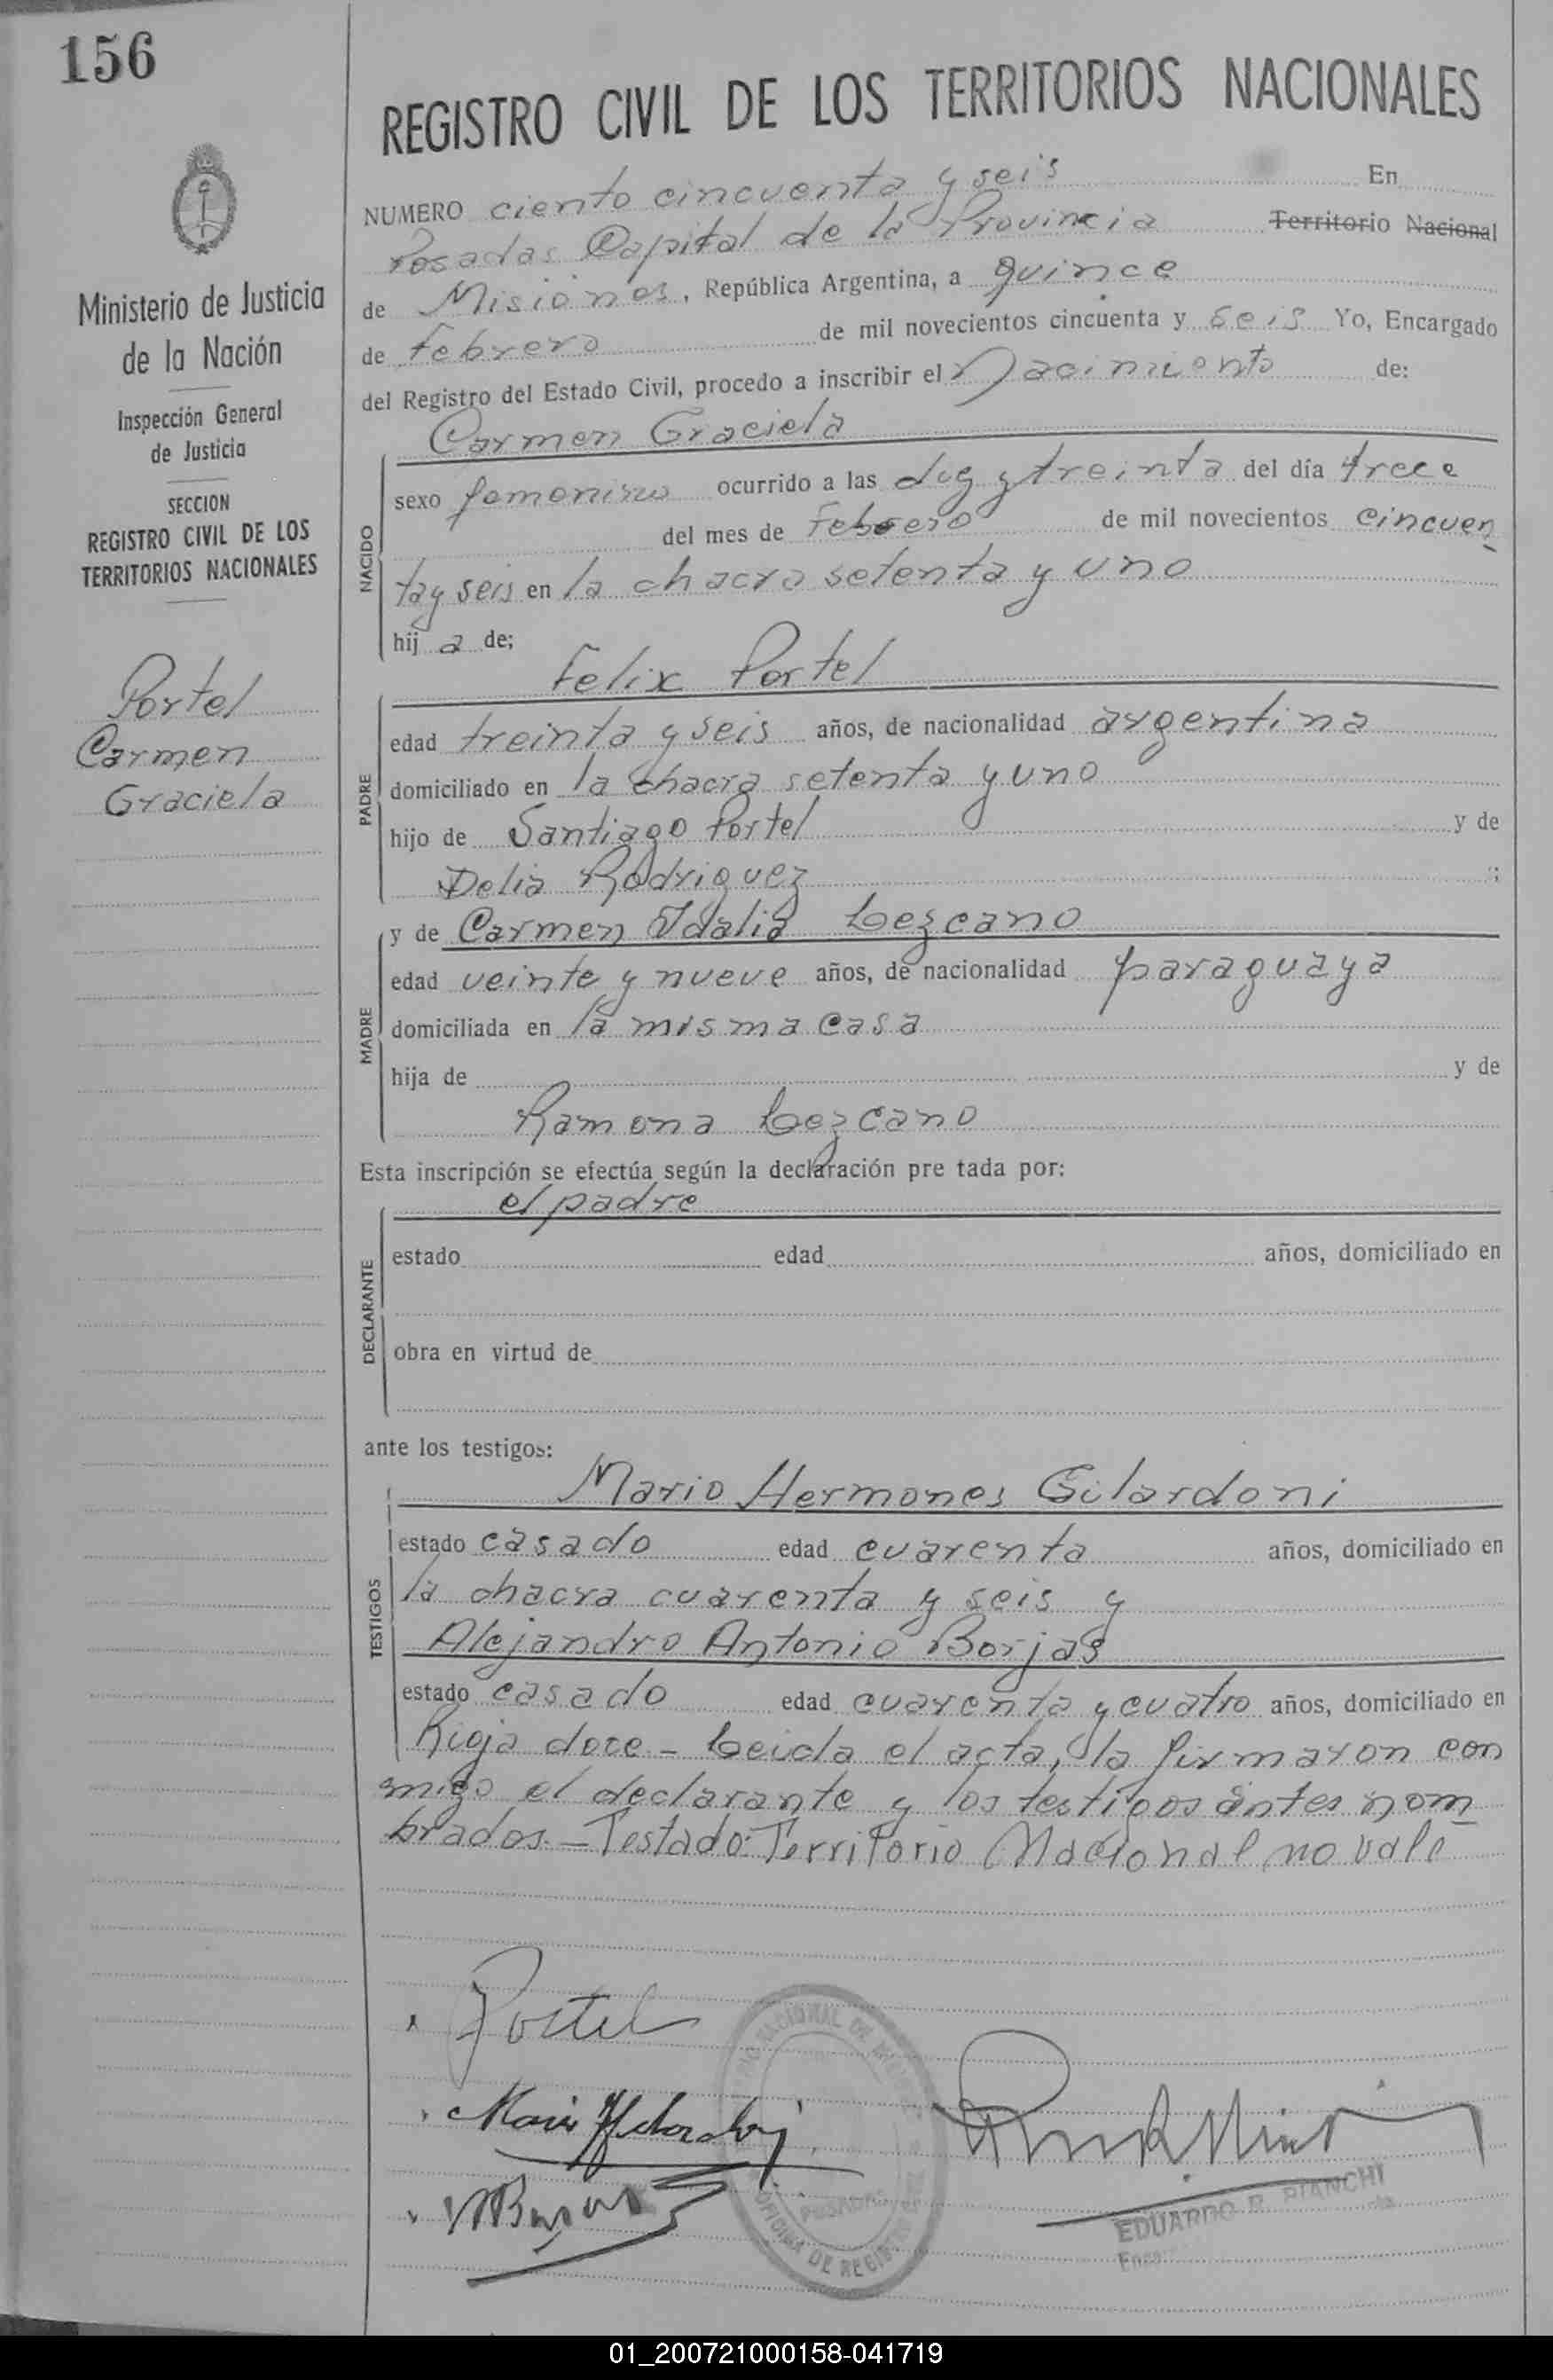 156
Ministerio de Justicia
de la Nación
Inspección General
de Justicia
SECCION
REGISTRO CIVIL DE LOS
TERRITORIOS NACIONALES
Portel
Carmen
Graciela
REGISTRO CIVIL DE LOS TERRITORIOS NACIONALES
NUMERO ciento cincuenta y seis En
Posadas Capital de la Provincia Territorio Nacional
de Misiones, República Argentina, a quince
de Febrero de mil novecientos cincuenta y seis Yo, Encargado
del Registro del Estado Civil, procedo a inscribir el Nacimiento de:
Carmen Graciela
NACIDO
sexo femenino ocurrido a las dos y treinta del día trece
del mes de Febrero de mil novecientos cincuen
ta y seis en la chacra setenta y uno
hij a de;
Felix Portel
PADRE
edad treinta y seis años, de nacionalidad argentina
domiciliado en la chacra setenta y uno
hijo de Santiago Portel y de
Delia Rodriguez ;
y de Carmen Idalia Lezcano
MADRE
edad veinte y nueve años, de nacionalidad paraguaya
domiciliada en la misma casa
hija de y de
Ramona Lezcano
Esta inscripción se efectúa según la declaración pre tada por:
el padre
DECLARANTE
estado edad años, domiciliado en
obra en virtud de
ante los testigos:
Mario Hermones Gilardoni
TESTIGOS
estado casado edad cuarenta años, domiciliado en
la chacra cuarenta y seis y
Alejandro Antonio Borjas
estado casado edad cuarenta y cuatro años, domiciliado en
Rioja doce - Leida el acta, la firmaron con
migo el declarante y los testigos antes nom
brados.- Testado: Territorio Nacional no vale
Portel
NACIONAL DE
POSADAS
OFICINA DE
EDUARDO R. BIANCHI
01_200721000158-041719